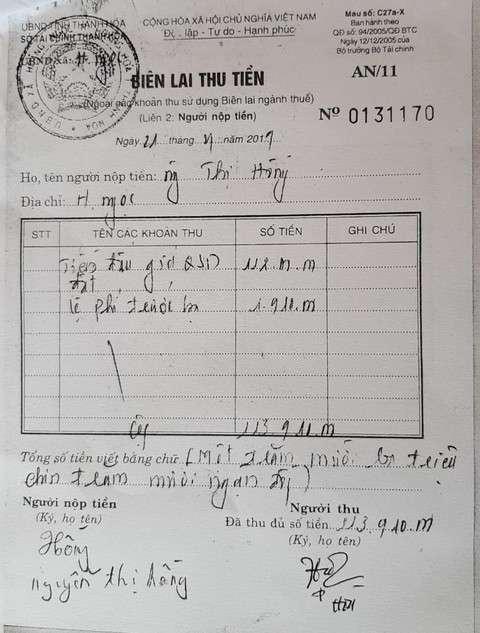 UBND TỈNH THANH HÓA
SỞ TÀI CHÍNH THANH HÓA
UBND Xã: H. ngọc
CỘNG HÒA XÃ HỘI CHỦ NGHĨA VIỆT NAM
Độc lập - Tự do - Hạnh phúc
Mau số: C27a-X
Ban hành theo
QĐ số: 94/2005/QĐ BTC
Ngày 12/12/2005 của
Bộ trưởng Bộ Tài chính
BIÊN LAI THU TIỀN
AN/11
(Ngoại các khoản thu sử dụng Biên lai ngành thuế)
(Liên 2: Người nộp tiền)
Nº 0131170
Ngày 21 tháng năm 2017
Họ, tên người nộp tiền: Thị Hồng
Địa chỉ: H. ngọc
STT TÊN CÁC KHOẢN THU SỐ TIỀN GHI CHÚ
Tiền đấu giá QSD 112.m.m
đất
lệ phí trước bạ 1.910.m
Cộng 113.910.m
Tổng số tiền viết bằng chữ (Một trăm mười ba triệu
chín trăm mười ngàn đồng)
Người nộp tiền
(Ký, họ tên)
Hồng
nguyễn thị hồng
Người thu
Đã thu đủ số tiền 113.910.m
(Ký, họ tên)